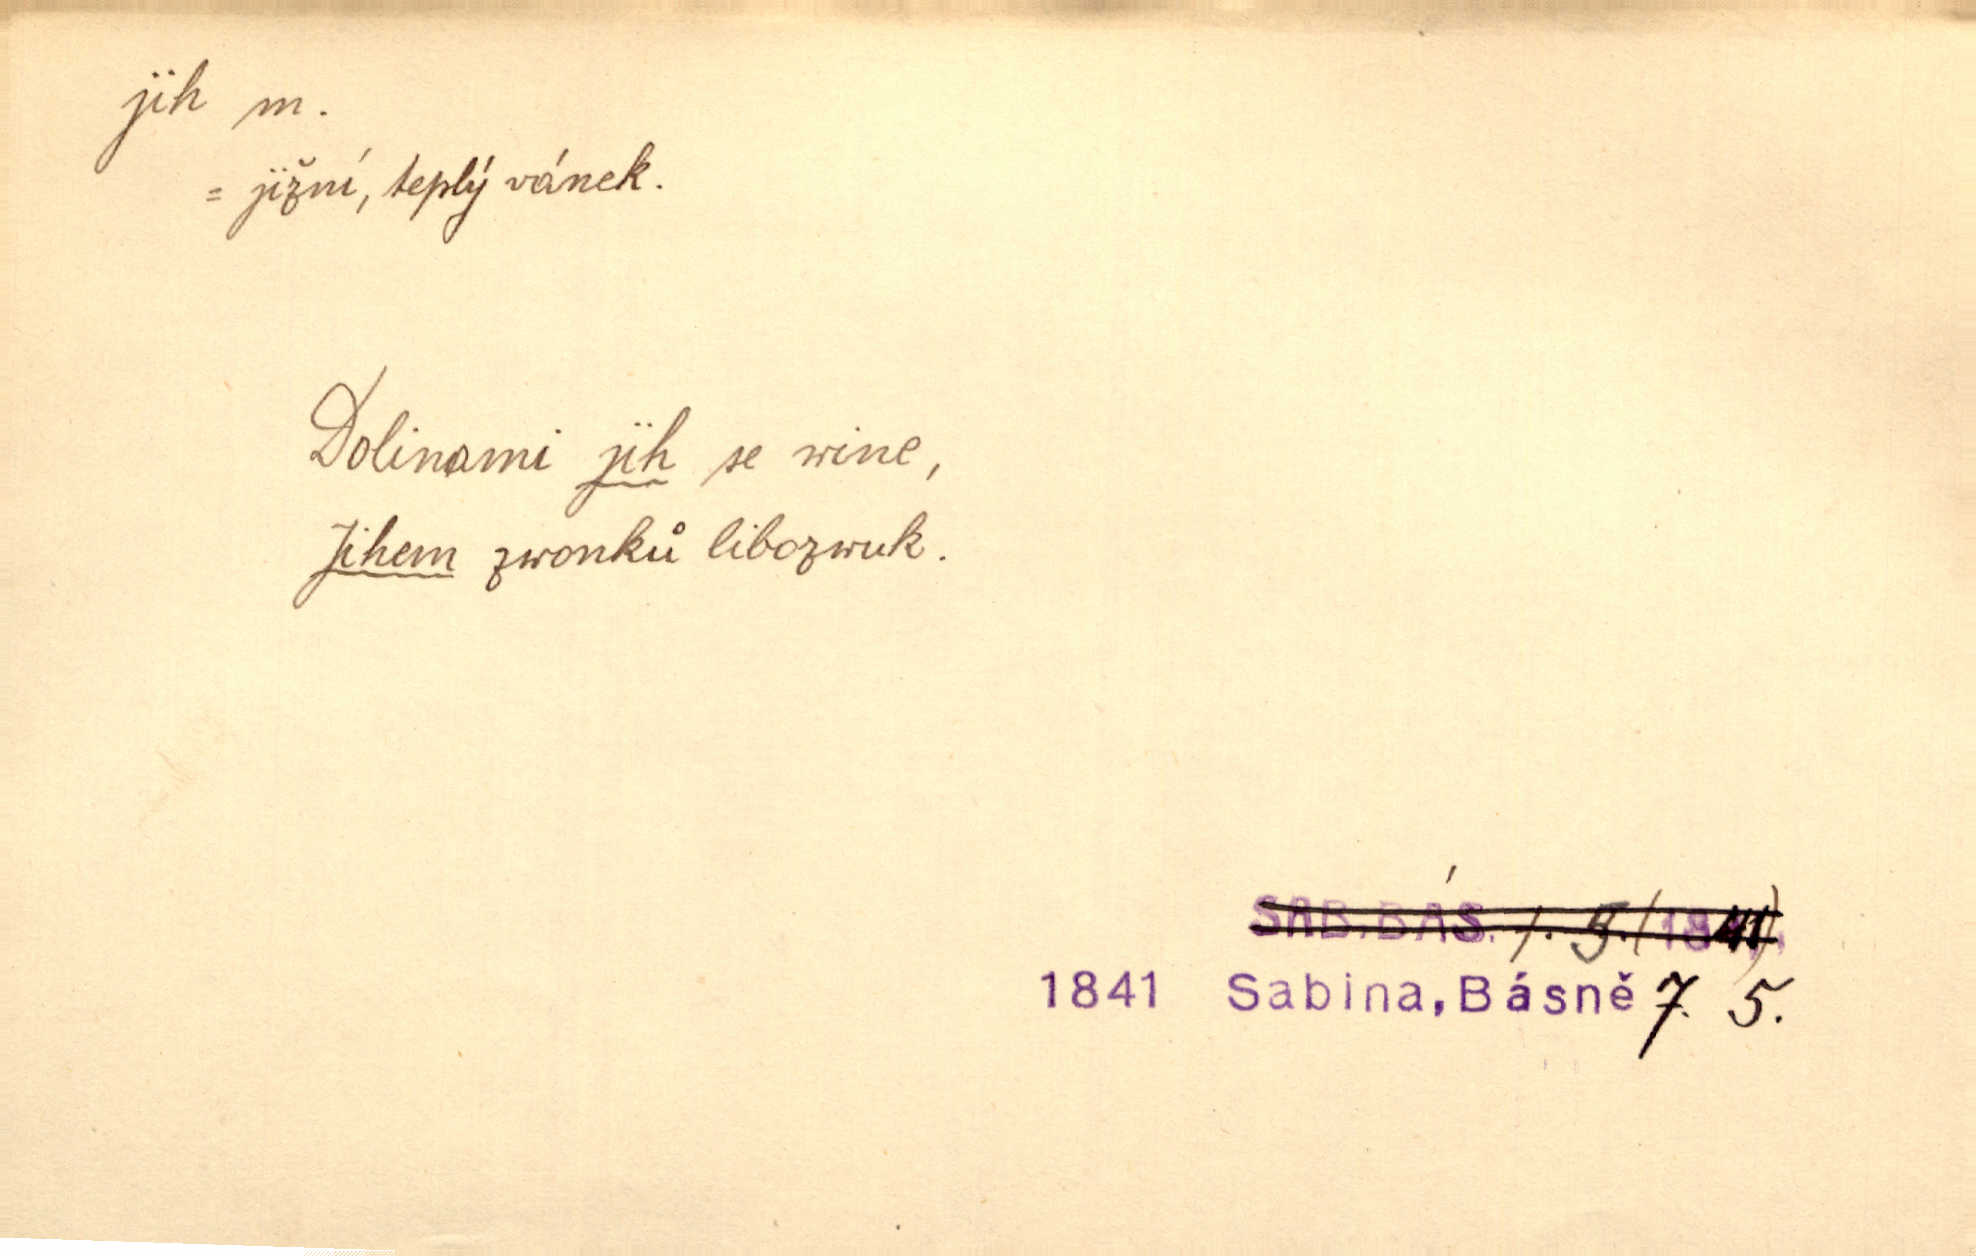 jih m.
= jižní, teplý vánek.
Dolinami jih se wine,
Jihem zwonků libozwuk.
SAB. BÁS. 1. 5. (1841)
1841 Sabina, Básně 7. 5.